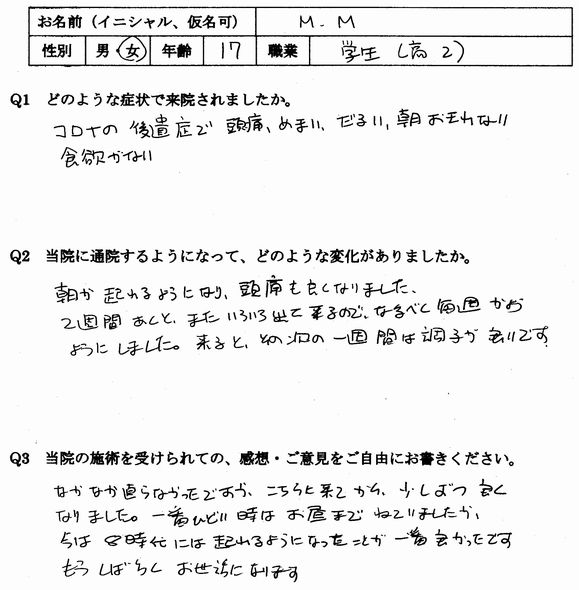 お名前（イニシャル、仮名可） M.M
性別 男・女 年齢 17 職業 学生（高2）
Q1 どのような症状で来院されましたか。
コロナの後遺症で頭痛、めまい、だるい、朝おきれない
食欲がない
Q2 当院に通院するようになって、どのような変化がありましたか。
朝か起れるようになり、頭痛も良くなりました、
2週間あくと、またいろいろ出て来るので、なるべく毎週かよう
ようにしました。来ると、その次の一週間は調子が良いです
Q3 当院の施術を受けられての、感想・ご意見をご自由にお書きください。
なかなか直らなかったですが、こちらに来てから、少しずつ良く
なりました。一番ひどい時はお昼までねていましたが、
今は8時代には起れるようになったことが一番良かったです
もうしばらくお世話になります